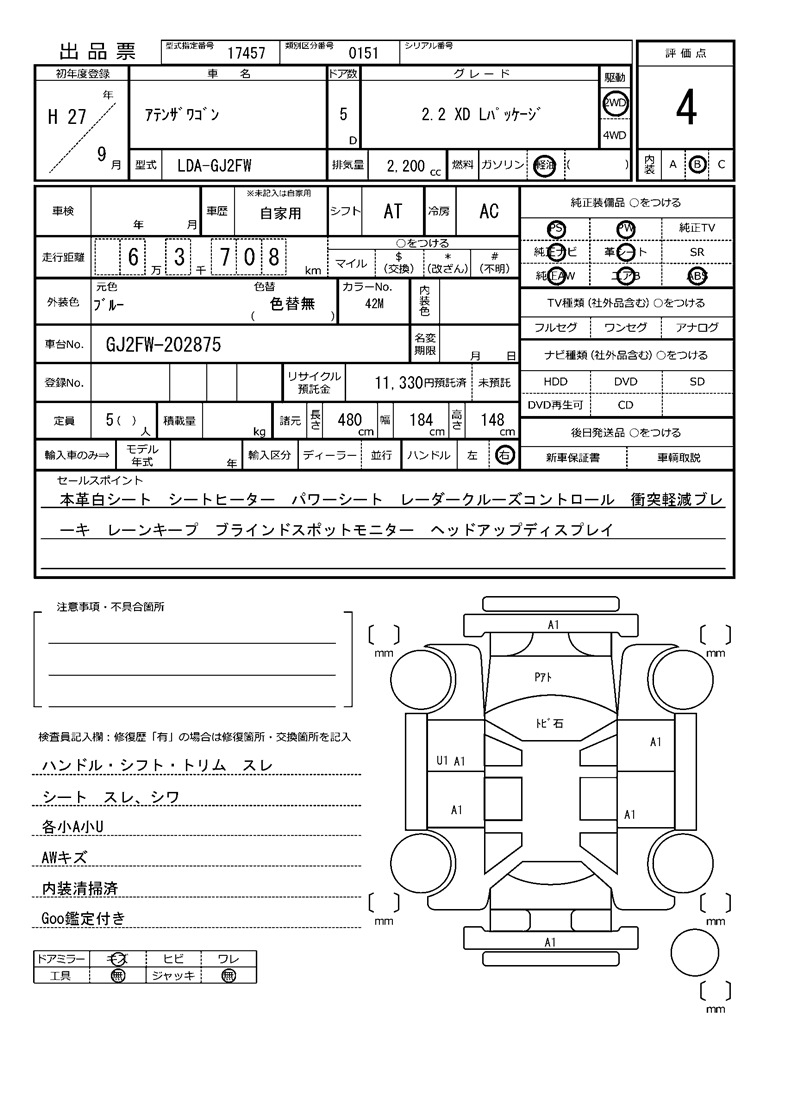 出品票 型式指定番号 17457 類別区分番号 0151 シリアル番号
評価点
4
内装 A B C
初年度登録 車名 ドア数 グレード 駆動
H 27 年 9 月 アテンザワゴン 5 D 2.2 XD Lパッケージ 2WD
4WD
型式 LDA-GJ2FW 排気量 2,200 cc 燃料 ガソリン 軽油 ( )
車検 年 月 車歴 ※未記入は自家用 自家用 シフト AT 冷房 AC
走行距離 6 万 3 千 7 0 8 km
○をつける
マイル $(交換) *(改ざん) #(不明)
外装色 元色 ブルー 色替 ( 色替無 ) カラーNo. 42M 内装色
車台No. GJ2FW-202875 名変期限 月 日
登録No. リサイクル預託金 11,330円預託済 未預託
定員 5 ( ) 人 積載量 kg 諸元 長さ 480 cm 幅 184 cm 高さ 148 cm
輸入車のみ⇒ モデル年式 年 輸入区分 ディーラー 並行 ハンドル 左 右
純正装備品 ○をつける
PS PW 純正TV
純正ナビ 革シート SR
純正AW エアB ABS
TV種類(社外品含む)○をつける
フルセグ ワンセグ アナログ
ナビ種類(社外品含む)○をつける
HDD DVD SD
DVD再生可 CD
後日発送品 ○をつける
新車保証書 車輌取説
セールスポイント
本革白シート シートヒーター パワーシート レーダークルーズコントロール 衝突軽減ブレ
ーキ レーンキープ ブラインドスポットモニター ヘッドアップディスプレイ
注意事項・不具合箇所
検査員記入欄：修復歴「有」の場合は修復箇所・交換箇所を記入
ハンドル・シフト・トリム スレ
シート スレ、シワ
各小A小U
AWキズ
内装清掃済
Goo鑑定付き
ドアミラー キズ ヒビ ワレ
工具 無 ジャッキ 無
A1
mm mm
Pアト
トビ石
U1 A1 A1
A1 A1
mm mm
A1
mm